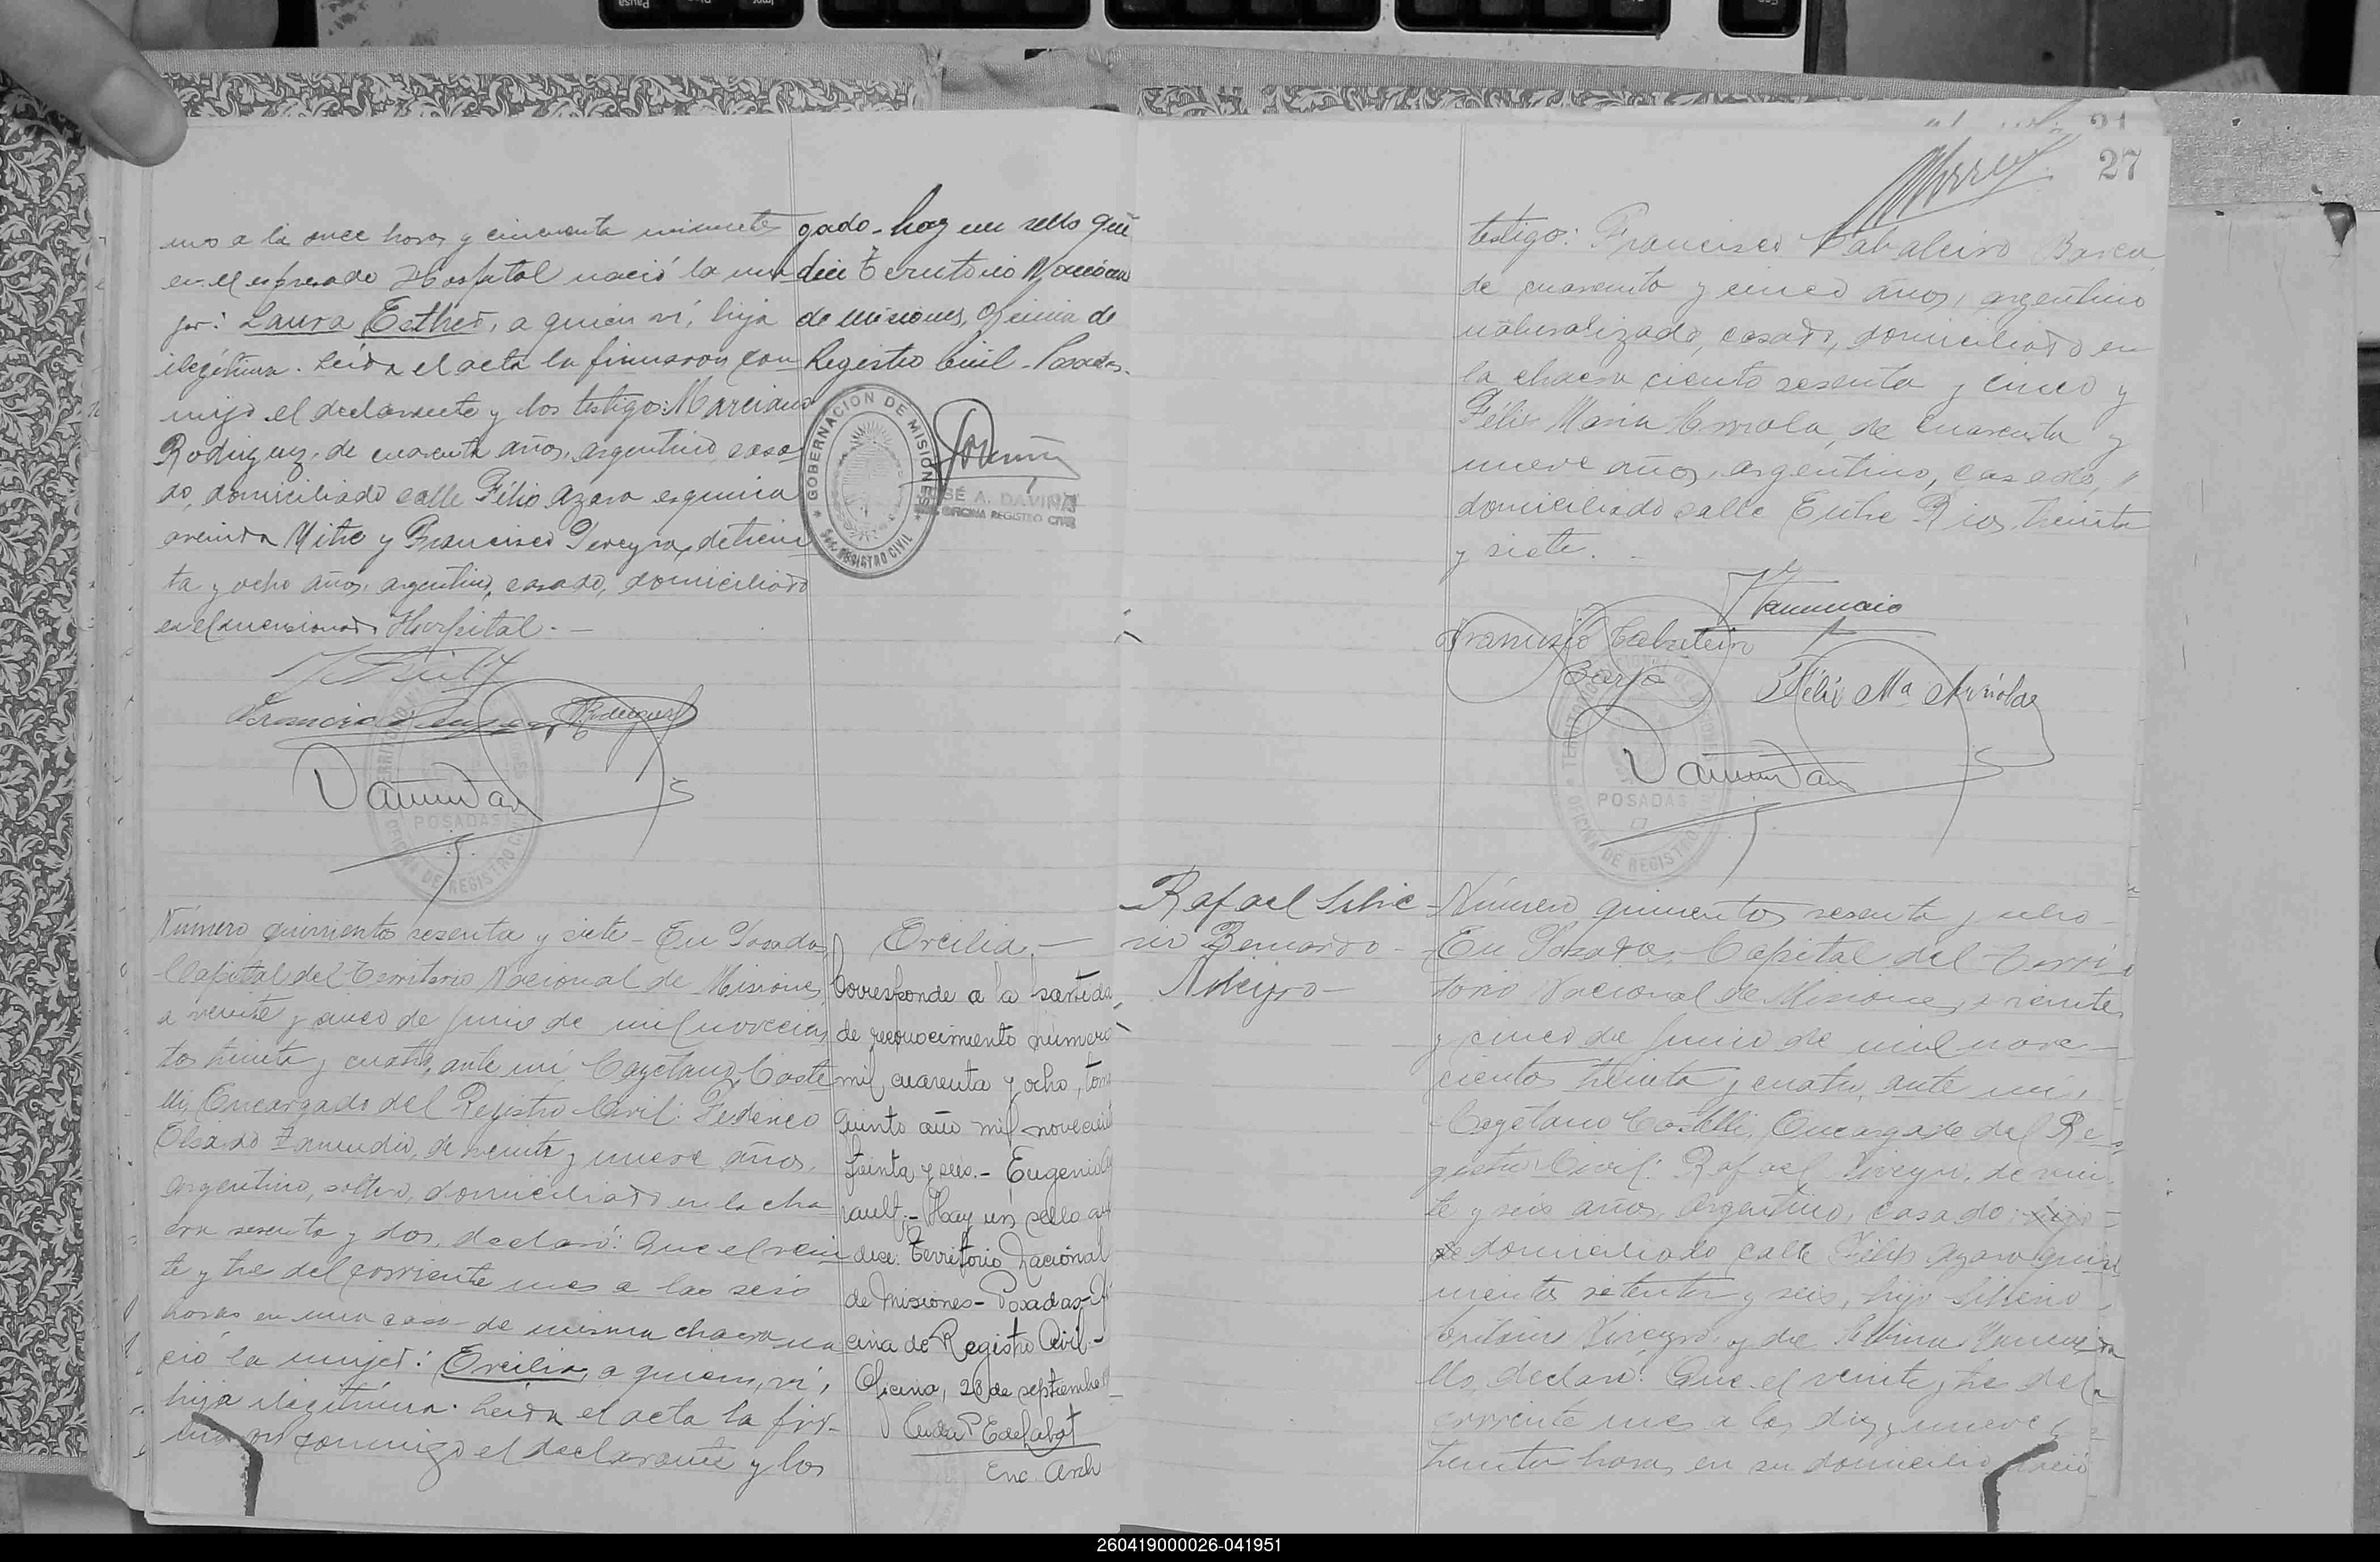 27
mo a la once horas y cincuenta minutos
en el expresado Hospital nació la mu
jer: Laura Esther, a quien ví, hija
ilegítima. Leída el acta la firmaron con
migo el declarante y los testigos: Marciano
Rodriguez, de cuarenta años, argentino, casa
do, domiciliado calle Félix Azara esquina
avenida Mitre y Francisco Pereyra, de trein
ta y ocho años, argentino, casado, domiciliado
en el mencionado Hospital. —
gado - hay un sello que
dice Territorio Nacional
de Misiones, Oficina de
Registro Civil - Posadas.
GOBERNACION DE MISIONES
REGISTRO CIVIL
JOSÉ A. DAVIÑA
OFICINA REGISTRO CIVIL
Rodriguez
POSADAS
OFICINA DE REGISTRO CIVIL
Número quinientos sesenta y siete - En Posadas
Capital del Territorio Nacional de Misiones,
a veinte y cinco de junio de mil novecien
tos treinta y cuatro, ante mí, Cayetano Caste
lli, Encargado del Registro Civil: Federico
Zamudio, de veinte y nueve años,
argentino, soltero, domiciliado en la cha
cra sesenta y dos, declaró: Que el vein
te y tre del corriente mes a las seis
horas en una casa de misma chacra na
ció la mujer: Ercilia, a quien, ví,
hija ilegítima. Leída el acta la fir-
maron conmigo el declarante y los
Ercilia. —
Corresponde a la partida
de reconocimiento número
mil cuarenta y ocho, tomo
quinto año mil novecien
treinta y seis. - Eugenio
Hay un sello que
dice: Territorio Nacional
de Misiones - Posadas - Ofi
cina de Registro Civil -
Oficina, 28 de septiembre
Enc. Arch
testigo: Francisco Cabaleiro Barea,
de cuarenta y cinco años, argentino
naturalizado, casado, domiciliado en
la chacra ciento sesenta y cinco y
Félix María Arriola, de cuarenta y
nueve años, argentino, casado,
domiciliado calle Entre Rios, treinta
y siete. -
Francisco Cabaleiro
Félix Ma Arriola
POSADAS
OFICINA DE REGISTRO
Rafael Silve
rio Bernardo
Niveyro -
Número quinientos sesenta y ocho -
En Posadas, Capital del Terri
torio Nacional de Misiones, a veinte
y cinco de junio de mil nove
cientos treinta y cuatro, ante mí,
Cayetano Castelli, Encargado del Re
gistro Civil: Rafael Niveyro, de vein
te y seis años, argentino, casado,
domiciliado calle Félix Azara quin
nientos setenta y seis, hijo Silverio
Niveyro, y de
declaró: Que el veinte y tres del
corriente mes a las diez y nueve
treinta horas, en su domicilio nació
260419000026-041951